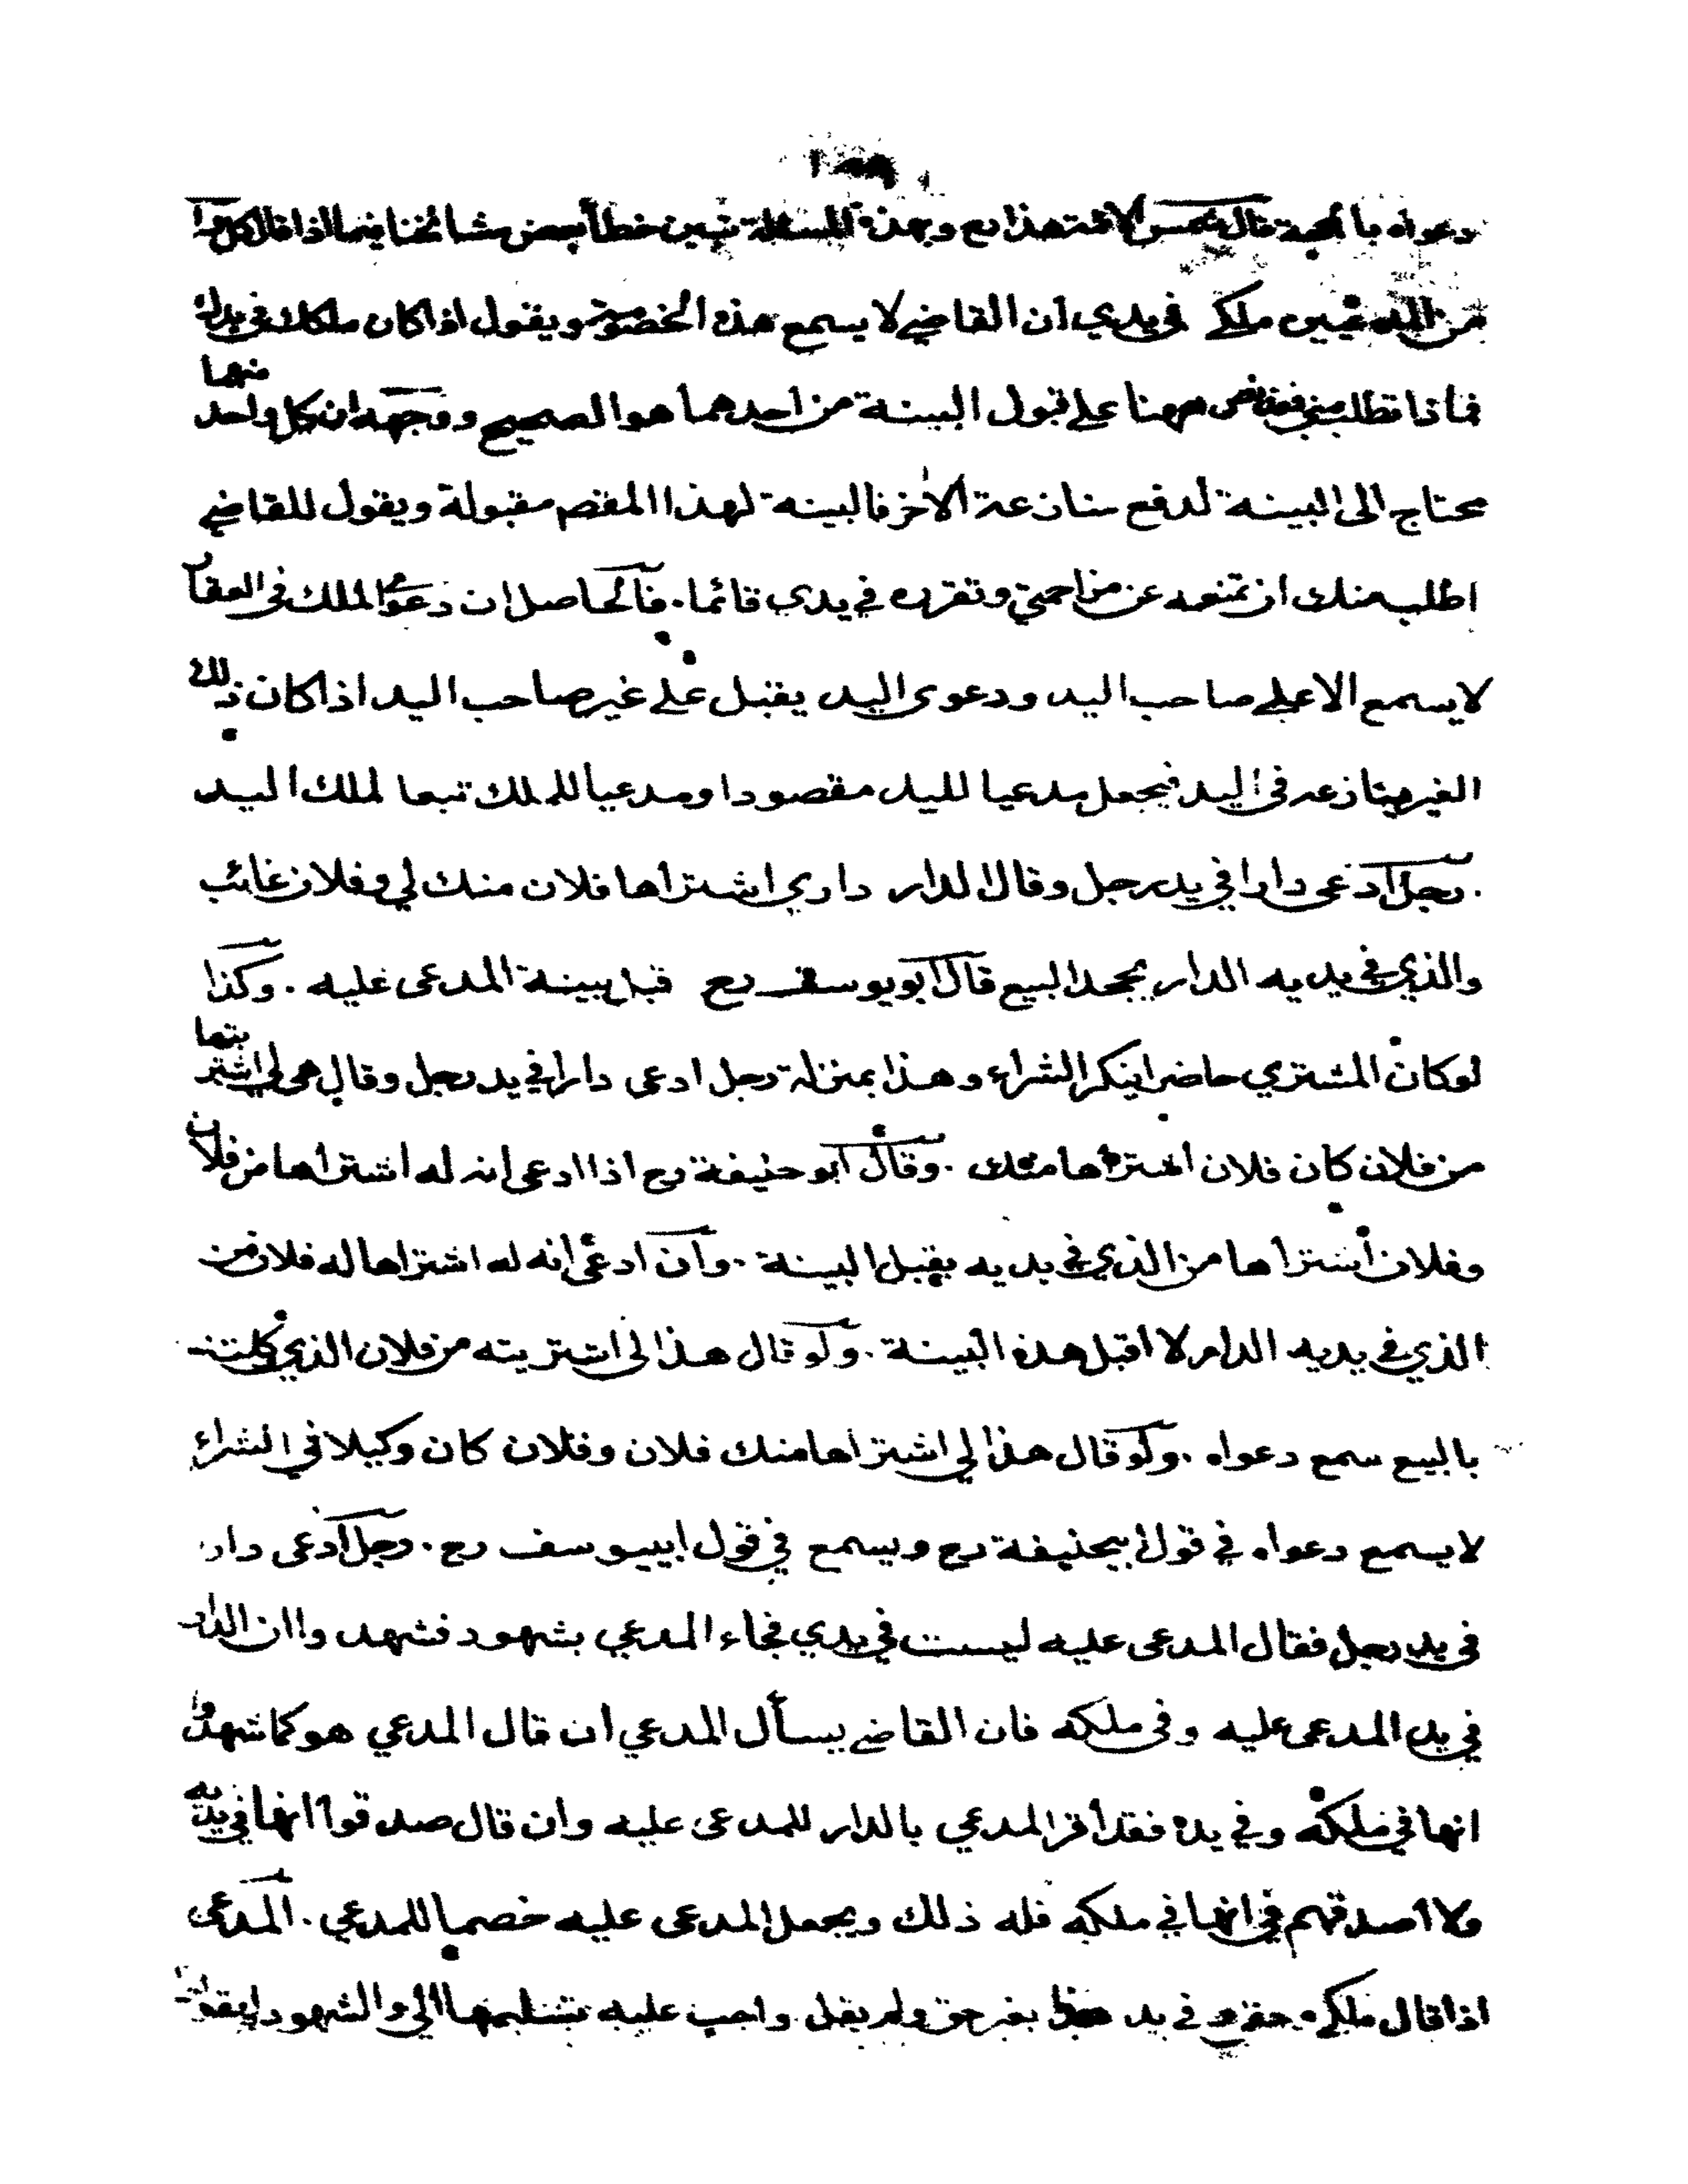 دعواه بالحجة قال شمس الائمة هذا رح وبهذه المسئلة تبين خطأ بعض مشائخنا فيما اذا قال كل واحد
من المدعيين ملكي في يدي ان القاضي لا يسمع هذه الخصومة ويقول اذا كان ملكك في يدك
فماذا تطلب مني فقد نص ههنا على قبول البينة من احدهما هو الصحيح ووجهه ان كل واحد منهما
محتاج الى البينة لدفع منازعة الاخر فالبينة لهذا المقصم مقبولة ويقول للقاضي
اطلب منك ان تمنعه عن مزاحمتي وتقرره في يدي قائما. فالحاصل ان دعوى الملك في العقار
لا يسمع الا على صاحب اليد ودعوى اليد يقبل على غير صاحب اليد اذا كان ذلك
الغير ينازعه في اليد فيجعل مدعيا لليد مقصودا ومدعيا للملك تبعا لملك اليد
. رجل ادعى دارا في يد رجل وقال الدار داري اشتراها فلان منك لي وفلان غائب
والذي في يديه الدار يجحد البيع قال ابو يوسف رح قبل بينة المدعى عليه . وكذا
لو كان المشتري حاضرا ينكر الشراء وهذا بمنزلة رجل ادعى دارا في يد رجل وقال هي لي اشتريتها
من فلان كان فلان اشتراها منك . وقال ابو حنيفة رح اذا ادعى انه له اشتراها من فلان
وفلان اشتراها من الذي في يديه يقبل البينة . وان ادعى انه له اشتراها له فلان من
الذي في يديه الدار لا اقبل هذه البينة . ولو قال هذا لي اشتريته من فلان الذي وكلته
بالبيع سمع دعواه . ولو قال هذا لي اشتراها منك فلان وفلان كان وكيلا في الشراء
لا يسمع دعواه في قول ابيحنيفة رح ويسمع في قول ابييوسف رح . رجل ادعى دارا
في يد رجل فقال المدعى عليه ليست في يدي فجاء المدعي بشهود فشهدوا ان الدار
في يد المدعى عليه وفي ملكه فان القاضي يسأل المدعي ان قال المدعي هو كما شهدوا
انها في ملكه وفي يده فقد أقر المدعي بالدار للمدعى عليه وان قال صدقوا انها في يديه
ولا اصدقهم في انها في ملكه فله ذلك ويجعل المدعى عليه خصما للمدعي . المدعي
اذا قال ملكي وحقي و في يد هذا بغير حق ولم يقل واجب عليه تسليمها الي والشهود لم يقولوا